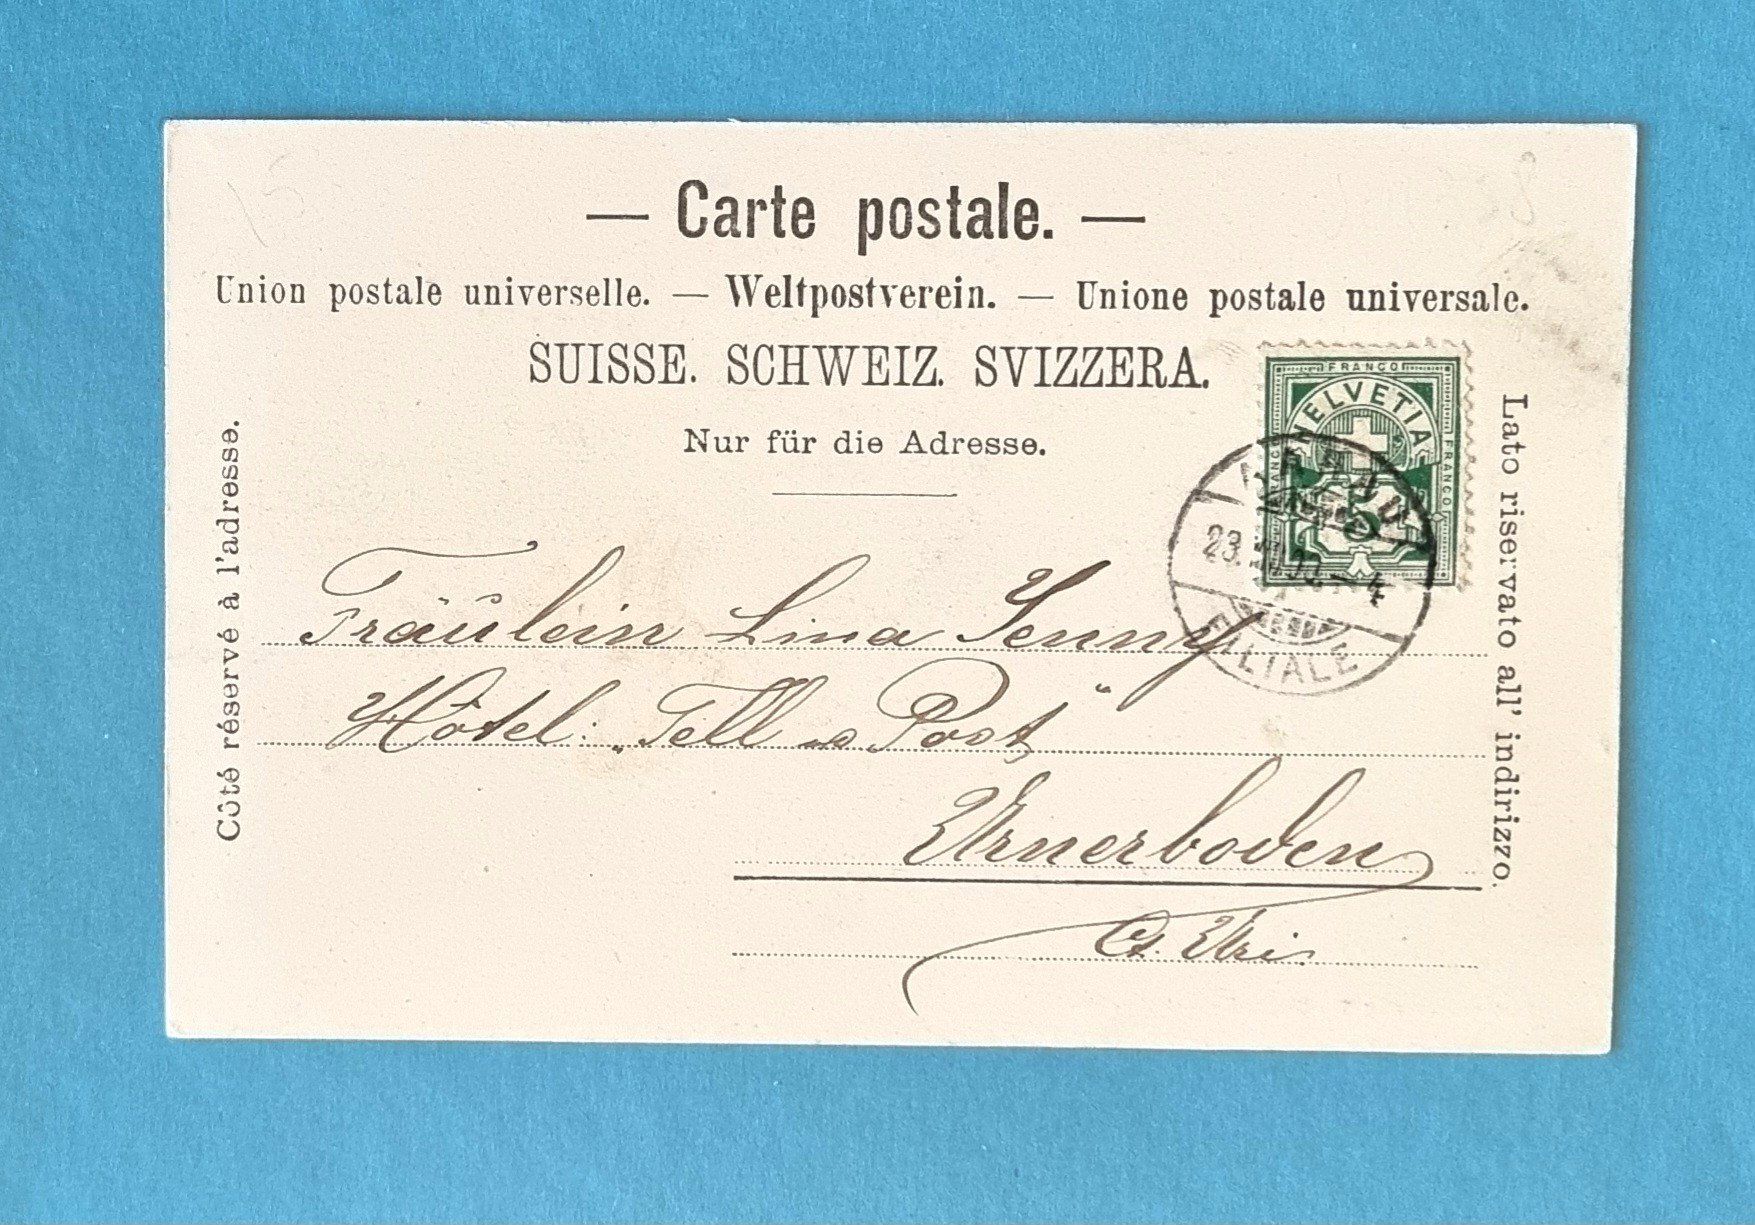 — Carte postale. —
Union postale universelle. — Weltpostverein. — Unione postale universale.
SUISSE. SCHWEIZ. SVIZZERA.
Nur für die Adresse.
Côté réservé à l'adresse.
Lato riservato all' indirizzo.
FRANCO
HELVETIA
FRANCO
FRANCO
5
AARAU
23. 00. – 4
FILIALE
Fräulein Lina Jenny
Hôtel: „Tell u Post“
Urnerboden
Ct. Uri.